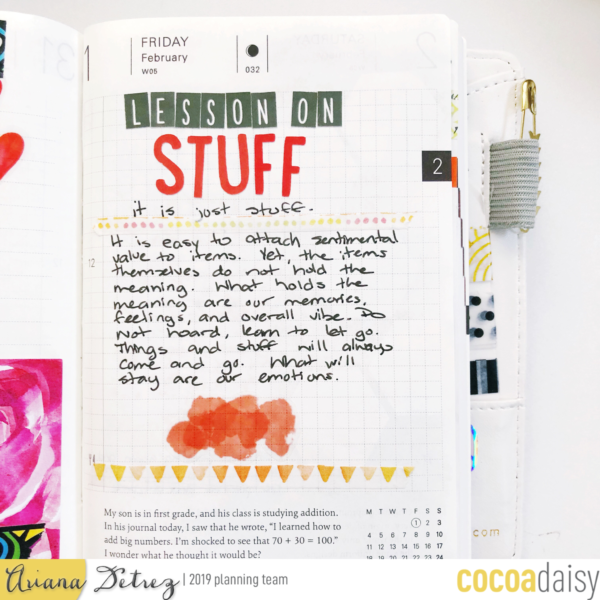 1
FRIDAY
February
W05
032
LESSON ON
STUFF
2
it is just stuff.
It is easy to attach sentimental
value to items. Yet, the items
12
themselves do not hold the
meaning. What holds the
meaning are our memories,
feelings, and overall vibe. Do
not hoard, learn to let go.
Things and stuff will always
come and go. What will
stay are our emotions.
My son is in first grade, and his class is studying addition.
In his journal today, I saw that he wrote, "I learned how to
add big numbers. I'm shocked to see that 70 + 30 = 100."
I wonder what he thought it would be?
M T W T F S S
1 2 3
4 5 6 7 8 9 10
11 12 13 14 15 16 17
18 19 20 21 22 23 24
com
Ariana Detrez | 2019 planning team
cocoadaisy